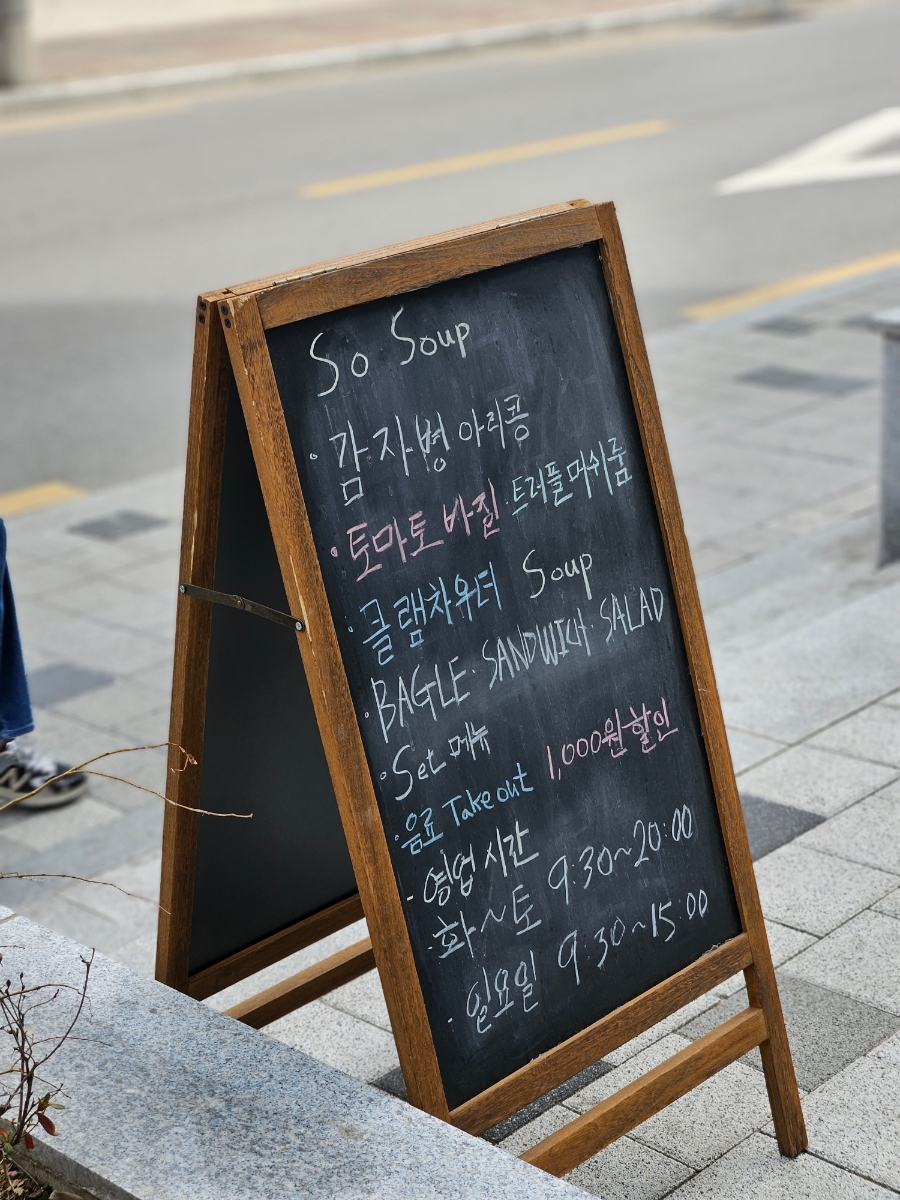 So Soup
· 감자병아리콩
· 토마토 바질 · 트러플 머쉬룸
· 클램차우더 Soup
· BAGLE · SANDWICH · SALAD
· Set 메뉴
· 음료 Take out 1,000원 할인
- 영업 시간
· 화~토 9:30~20:00
· 일요일 9:30~15:00